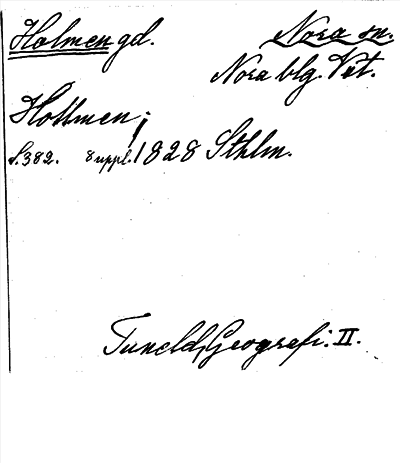 Holmen gd. Nora sn.
Nora blg. Vst.
Hollmen;
S. 382. suppl. 1828 Sthlm.
Tuneld, Geografi. II.